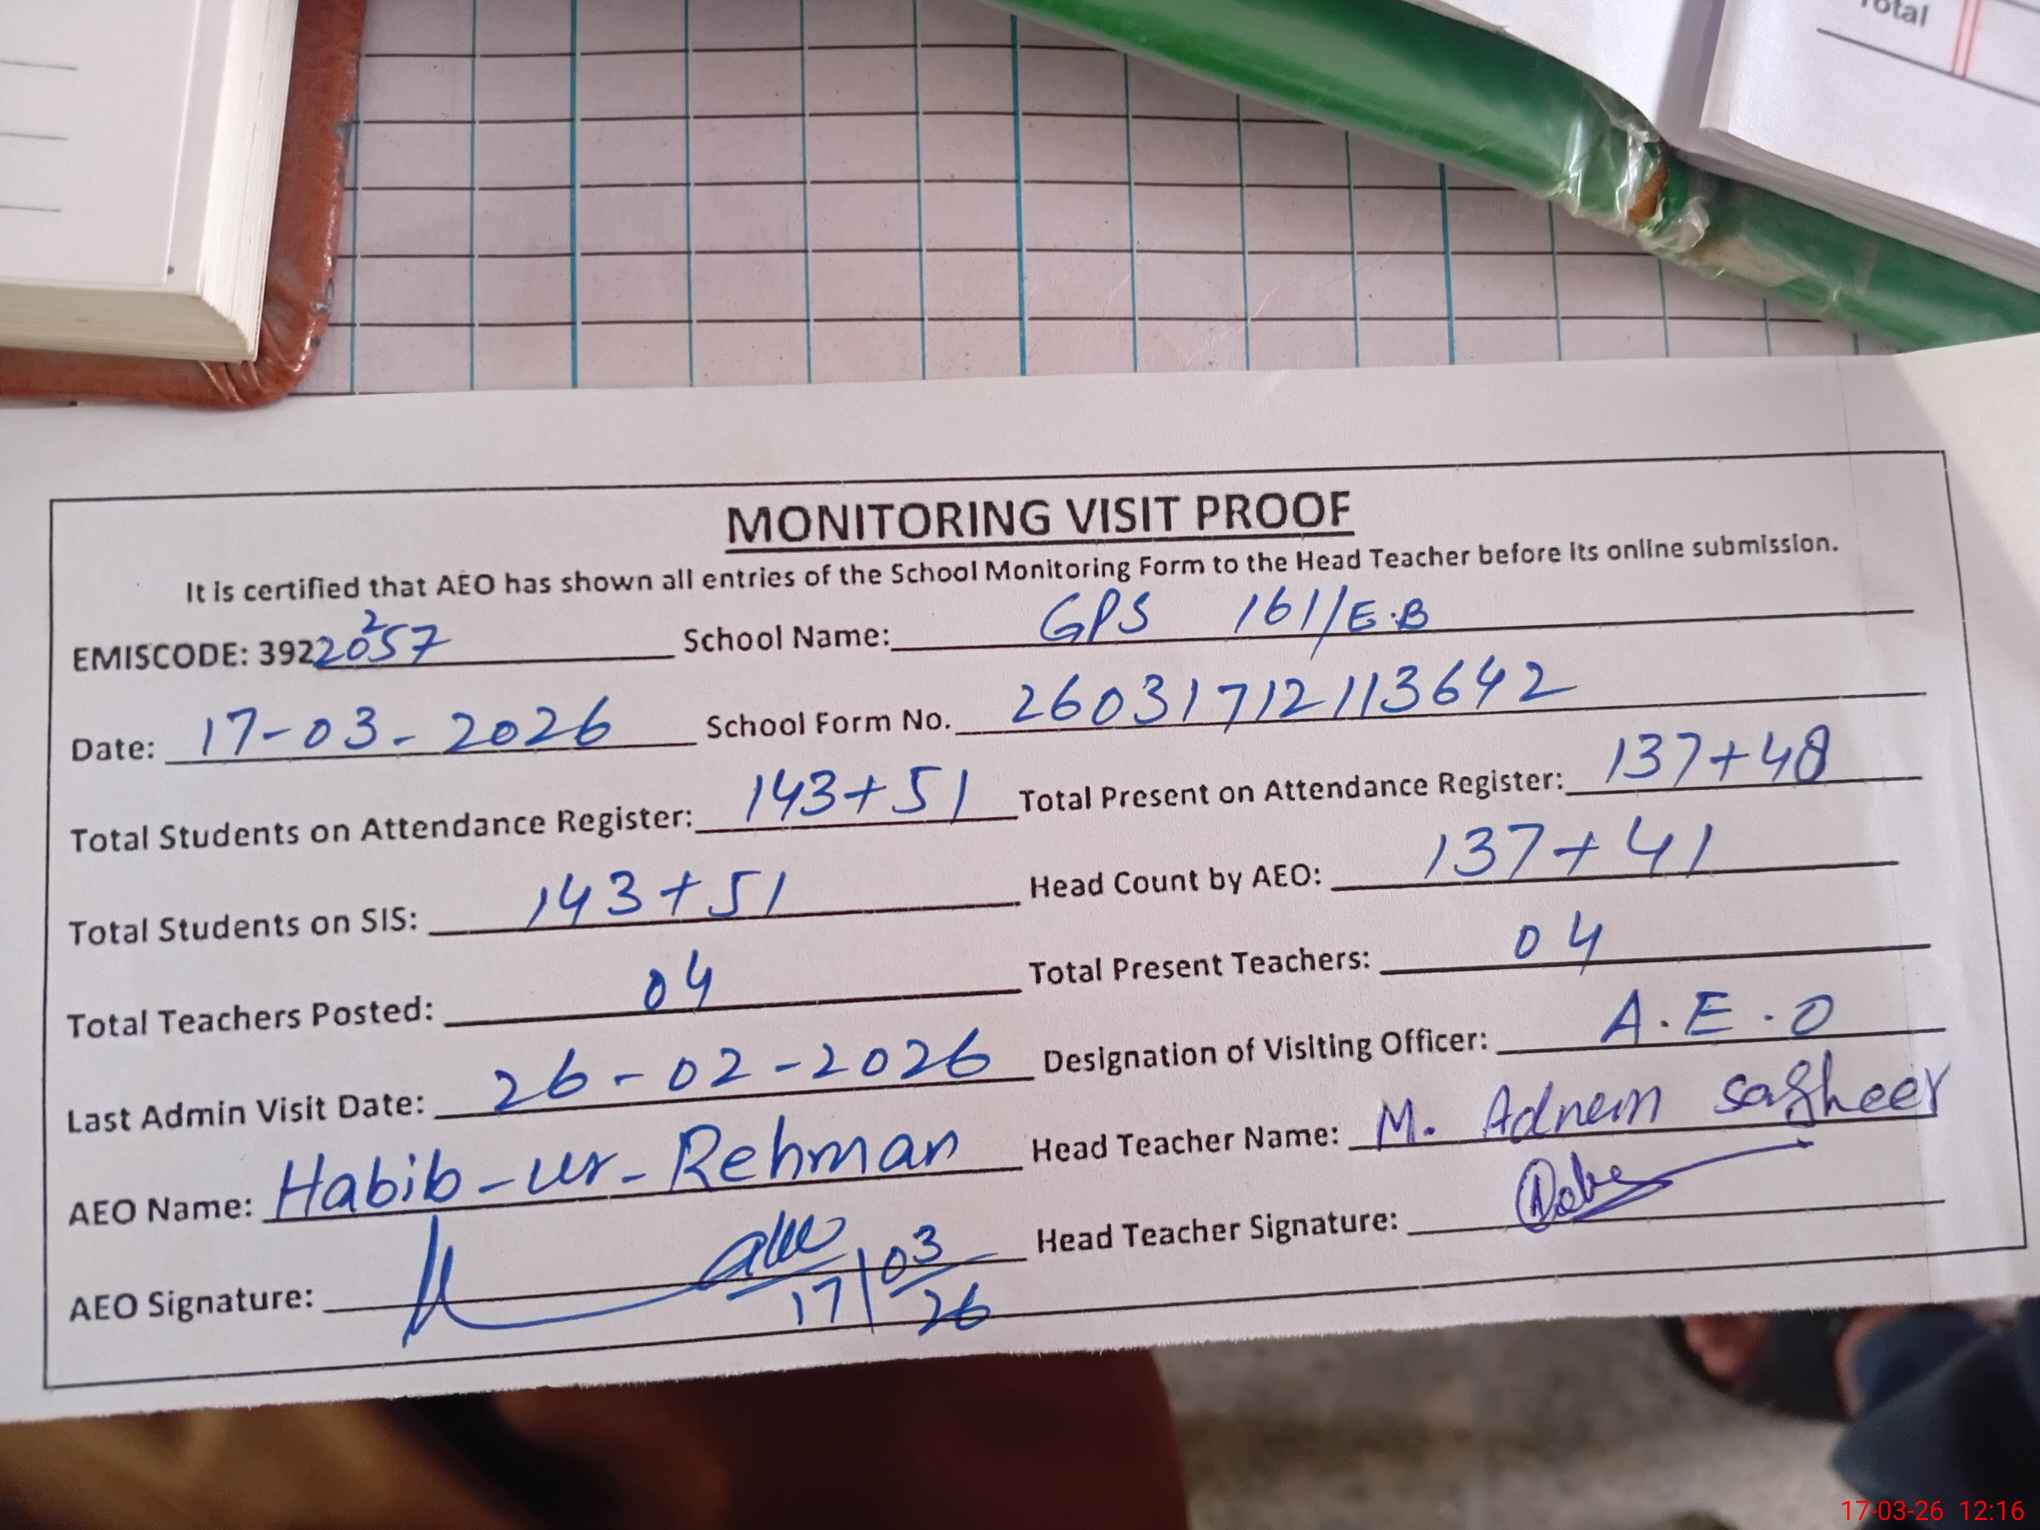 Total
MONITORING VISIT PROOF
It is certified that AEO has shown all entries of the School Monitoring Form to the Head Teacher before its online submission.
EMISCODE: 39222057 School Name: GPS 161/E.B
2
Date: 17-03-2026 School Form No. 26031712113642
Total Students on Attendance Register: 143+51 Total Present on Attendance Register: 137+48
Total Students on SIS: 143+51 Head Count by AEO: 137+41
Total Teachers Posted: 04 Total Present Teachers: 04
Last Admin Visit Date: 26-02-2026 Designation of Visiting Officer: A.E.O
AEO Name: Habib-ur-Rehman Head Teacher Name: M. Adnan Sagheer
AEO Signature: 17/03/26 Head Teacher Signature:
17-03-26 12:16